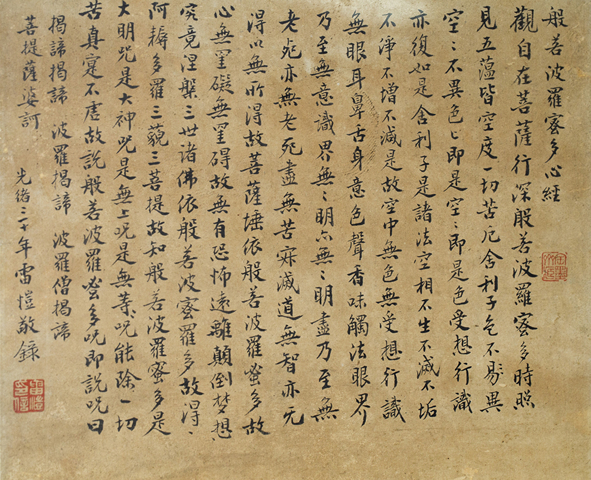 般若波羅蜜多心經
觀自在菩薩行深般若波羅蜜多時照
見五蘊皆空度一切苦厄舍利子色不異
空〻不異色〻即是空〻即是色受想行識
亦復如是舍利子是諸法空相不生不滅不垢
不淨不增不減是故空中無色無受想行識
無眼耳鼻舌身意色聲香味觸法眼界
乃至無意識界無〻明亦無〻明盡乃至無
老死亦無老死盡無苦寂滅道無智亦无
得以無所得故菩薩埵依般若波羅蜜多故
心無罣礙無罣碍故無有恐怖遠離顛倒梦想
究竟涅槃三世諸佛依般若波羅蜜多故得〻
阿耨多羅三藐三菩提故知般若波羅蜜多是
大明咒是大神咒是無上咒是無等咒能除一切
苦真寔不虛故說般若波羅蜜多咒即說咒曰
揭諦揭諦 波羅揭諦 波羅僧揭諦
菩提薩婆訶
光緒三十年雷愷敬錄